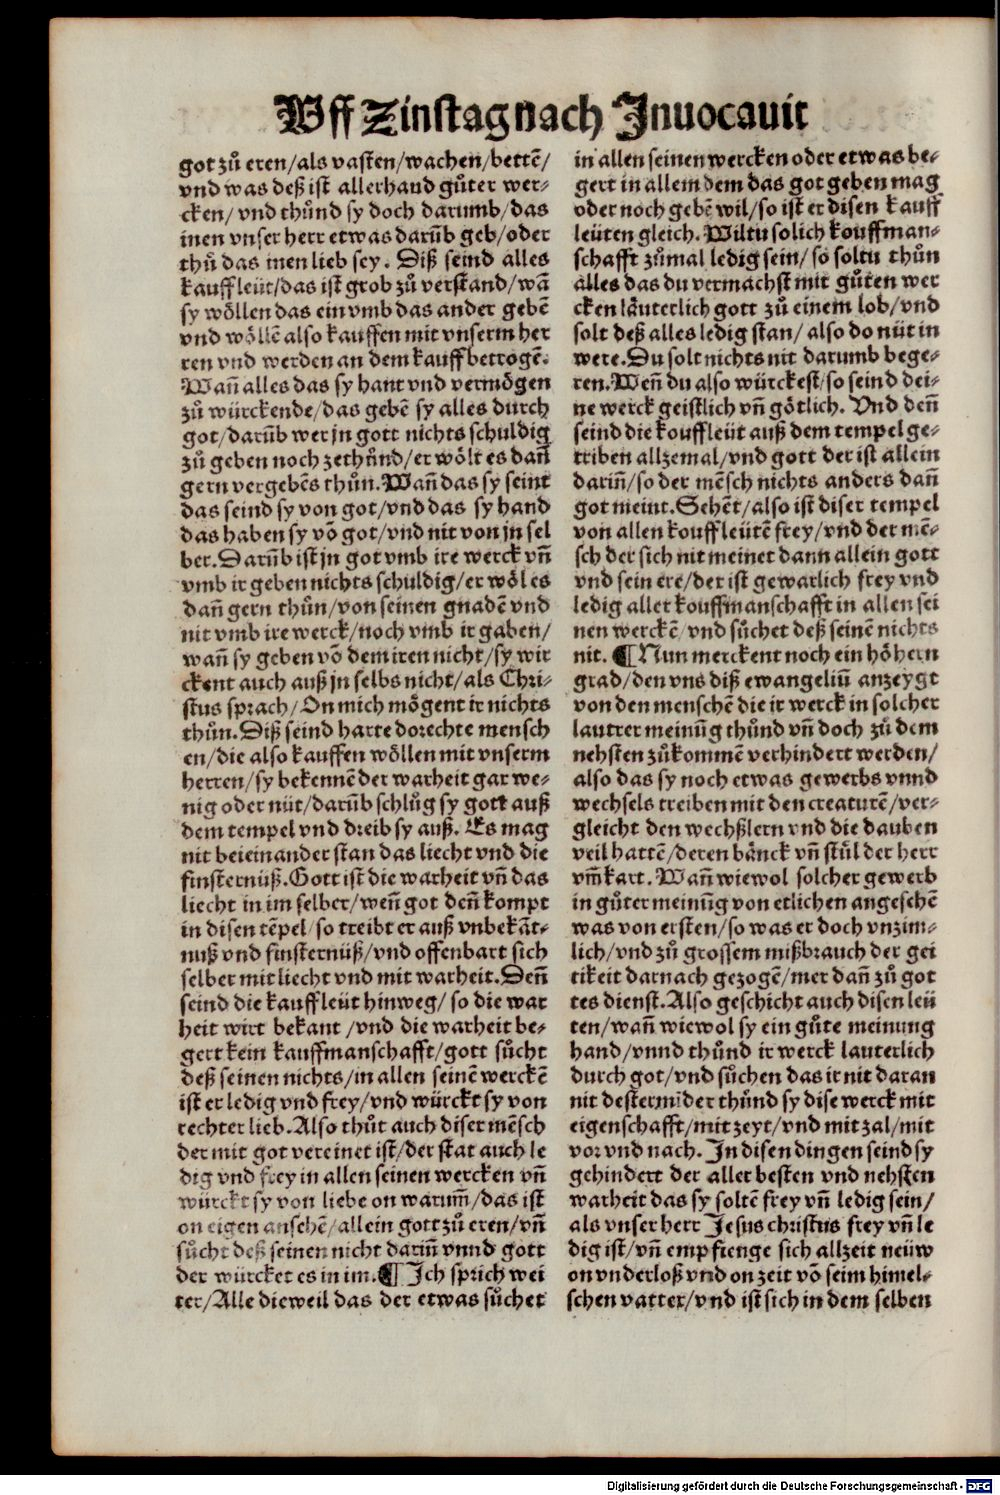 Vff Zinstag nach Inuocauit
got zů eren/als vasten/wachen/bettē/
vnd was deß ist allerhaud gůter wer-
cken/ vnd thůnd sy doch darumb/das
inen vnser herr etwas darūb geb/oder
thů das inen lieb sey. Diß seind alles
kauffleüt/das ist grob zů verstand/wā
sy wöllen das ein vmb das ander gebē
vnd wöllē also kauffen mit vnserm her
ren vnd werden an dem kauff betrogē.
Wañ alles das sy hant vnd vermögen
zů würckende/das gebē sy alles durch
got/darūb wer jn gott nichts schuldig
zů geben noch zethůnd/er wölt es dañ
gern vergebēs thůn. Wañ das sy seint
das seind sy von got/vnd das sy hand
das haben sy vō got/vnd nit von jn sel
ber. Darūb ist jn got vmb ire werck vñ
vmb ir geben nichts schuldig/er wöl es
dañ gern thůn/von seinen gnadē vnd
nit vmb ire werck/noch vmb ir gaben/
wañ sy geben vō dem iren nicht/sy wir
ckent auch auß jn selbs nicht/als Chri-
stus sprach/On mich mögent ir nichts
thůn. Diß seind harte dorechte mensch
en/die also kauffen wöllen mit vnserm
herren/sy bekennē der warheit gar we-
nig oder nüt/darūb schlůg sy gott auß
dem tempel vnd dreib sy auß. Es mag
nit beieinander stan das liecht vnd die
finsternüß. Gott ist die warheit vñ das
liecht in im selber/weñ got deñ kompt
in disen tēpel/so treibt er auß vnbekāt-
nuß vnd finsternüß/vnd offenbart sich
selber mit liecht vnd mit warheit. Deñ
seind die kauffleüt hinweg/ so die war
heit wirt bekant /vnd die warheit be-
gert kein kauffmanschafft/gott sůcht
deß seinen nichts/in allen seinē werckē
ist er ledig vnd frey/vnd würckt sy von
rechter lieb. Also thůt auch diser mēsch
der mit got vereinet ist/der stat auch le
dig vnd frey in allen seinen wercken vñ
würckt sy von liebe on warum̄/das ist
on eigen ansehē/allein gott zů eren/vñ
sůcht deß seinen nicht dariñ vnnd gott
der würcket es in im. ¶ Ich sprich wei
ter/Alle dieweil das der etwas sůchet
in allen seinen wercken oder etwas be-
gert in allem dem das got geben mag
oder noch gebē wil/so ist er disen kauff
leüten gleich. Wiltu solich kouffman-
schafft zůmal ledig sein/ so soltu thůn
alles das du vermachst mit gůten wer
cken läuterlich gott zů einem lob/vnd
solt deß alles ledig stan/ also do nüt in
were. Du solt nichts nit darumb bege-
ren. Weñ du also würckest/so seind dei-
ne werck geistlich vñ götlich. Vnd deñ
seind die kouffleüt auß dem tempel ge-
triben allzemal/vnd gott der ist allein
dariñ/so der mēsch nichts anders dañ
got meint. Sehēt/also ist diser tempel
von allen kouffleütē frey/vnd der mē-
sch der sich nit meinet dann allein gott
vnd sein ere/der ist gewarlich frey vnd
ledig aller kouffmanschafft in allen sei
nen werckē/vnd sůchet deß seinē nichts
nit. ¶ Nun merckent noch ein höhern
grad/den vns diß ewangeliū anzeygt
von den menschē die ir werck in solcher
lautrer meinūg thůnd vñ doch zů dem
nehsten zůkommē verhindert werden/
also das sy noch etwas gewerbs vnnd
wechsels treiben mit den creaturē/ver-
gleicht den wechßlern vnd die dauben
veil hattē/deren bänck vñ stül der herr
vm̄kart. Wañ wiewol solcher gewerb
in gůter meinūg von etlichen angesehē
was von ersten/so was er doch vnzim-
lich/vnd zů grossem mißbrauch der gei
tikeit darnach gezogē/mer dañ zů got
tes dienst. Also geschicht auch disen leü
ten/wañ wiewol sy ein gůte meinung
hand/vnnd thůnd ir werck lauterlich
durch got/vnd sůchen das ir nit daran
nit destermīder thůnd sy dise werck mit
eigenschafft/mit zeyt/vnd mit zal/mit
vor vnd nach. In disen dingen seind sy
gehindert der aller besten vnd nehsten
warheit das sy soltē frey vñ ledig sein/
als vnser herr Jesus christus frey vñ le
dig ist/vñ empfienge sich allzeit neüw
on vnderloß vnd on zeit vō seim himel-
schen vatter/vnd ist sich in dem selben
Digitalisierung gefördert durch die Deutsche Forschungsgemeinschaft - DFG